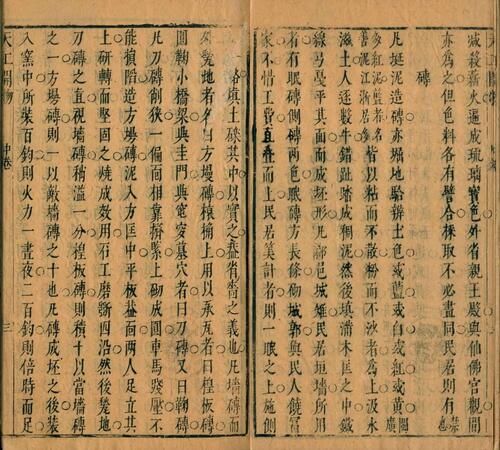 滅殺薪火逼成琉璃寶色外省親王殿與仙佛宮觀間
亦爲之但色料各有譬合採取不必盡同民居則有禁也
磚
凡埏泥造磚亦堀地騐辨土色或藍或白或紅或黃閩廣
多紅泥藍者名善泥江浙居多皆以粘而不散粉而不沙者爲上汲水
滋土人逐數牛錯趾踏成稠泥然後填滿木匡之中鐵
線弓戛平其面而成坯形凡郡邑城雉民居垣墻所用
者有眠磚側磚兩色眠磚方長條砌城郭與民人饒富
家不惜工費直疊而上民居筭計者則一眠之上施側
磚一路填土礫其中以實之蓋省嗇之義也凡墻磚而
外甃地者名曰方墁磚榱桷上用以承瓦者曰楻板磚
圓鞠小橋梁與圭門與窀穸墓穴者曰刀磚又曰鞠磚
凡刀磚削狹一偏面相靠擠緊上砌成圓車馬踐壓不
能損陷造方墁磚泥入方匡中平板蓋面兩人足立其
上研轉而堅固之燒成效用石工磨斲四沿然後甃地
刀磚之直視墻磚稍溢一分楻板磚則積十以當墻磚
之一方墁磚則一以敵墻磚之十也凡磚成坯之後裝
入窯中所裝百鈞則火力一晝夜二百鈞則倍時而足
天工開物 中卷 三